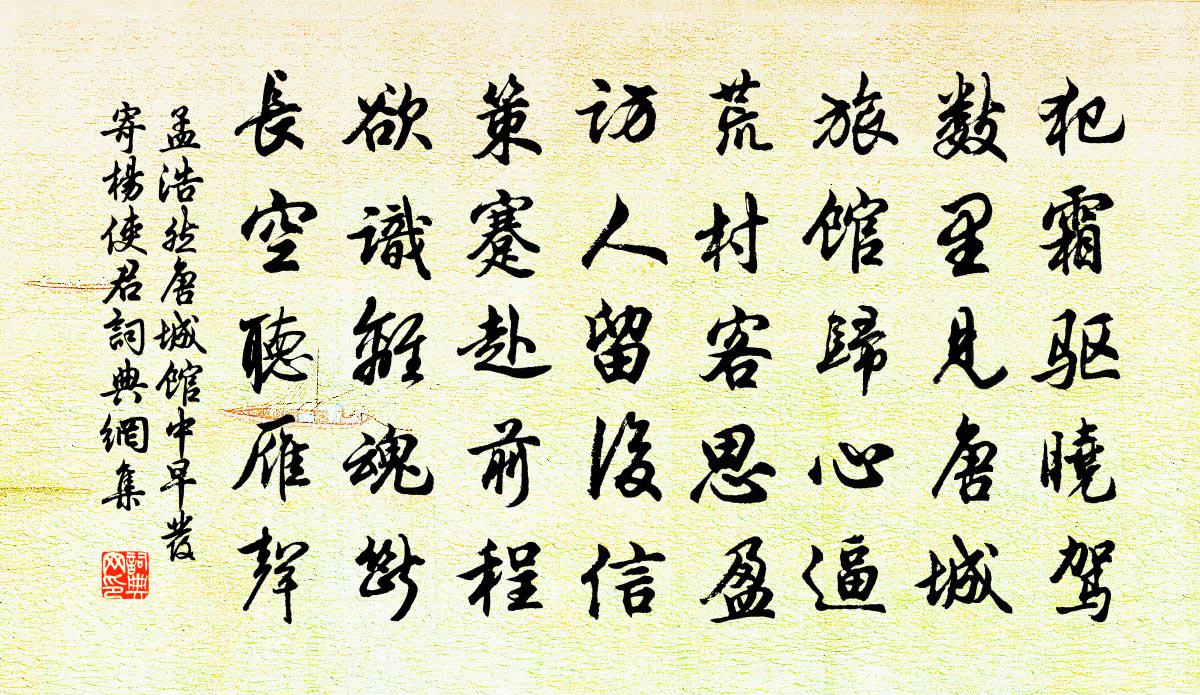 犯霜驱曉駕
數里見唐城
旅館歸心逼
荒村客思盈
訪人留後信
策蹇赴前程
欲識離魂斷
長空聽雁聲
孟浩然唐城館中早發
寄楊使君詞典網集
詞典网印